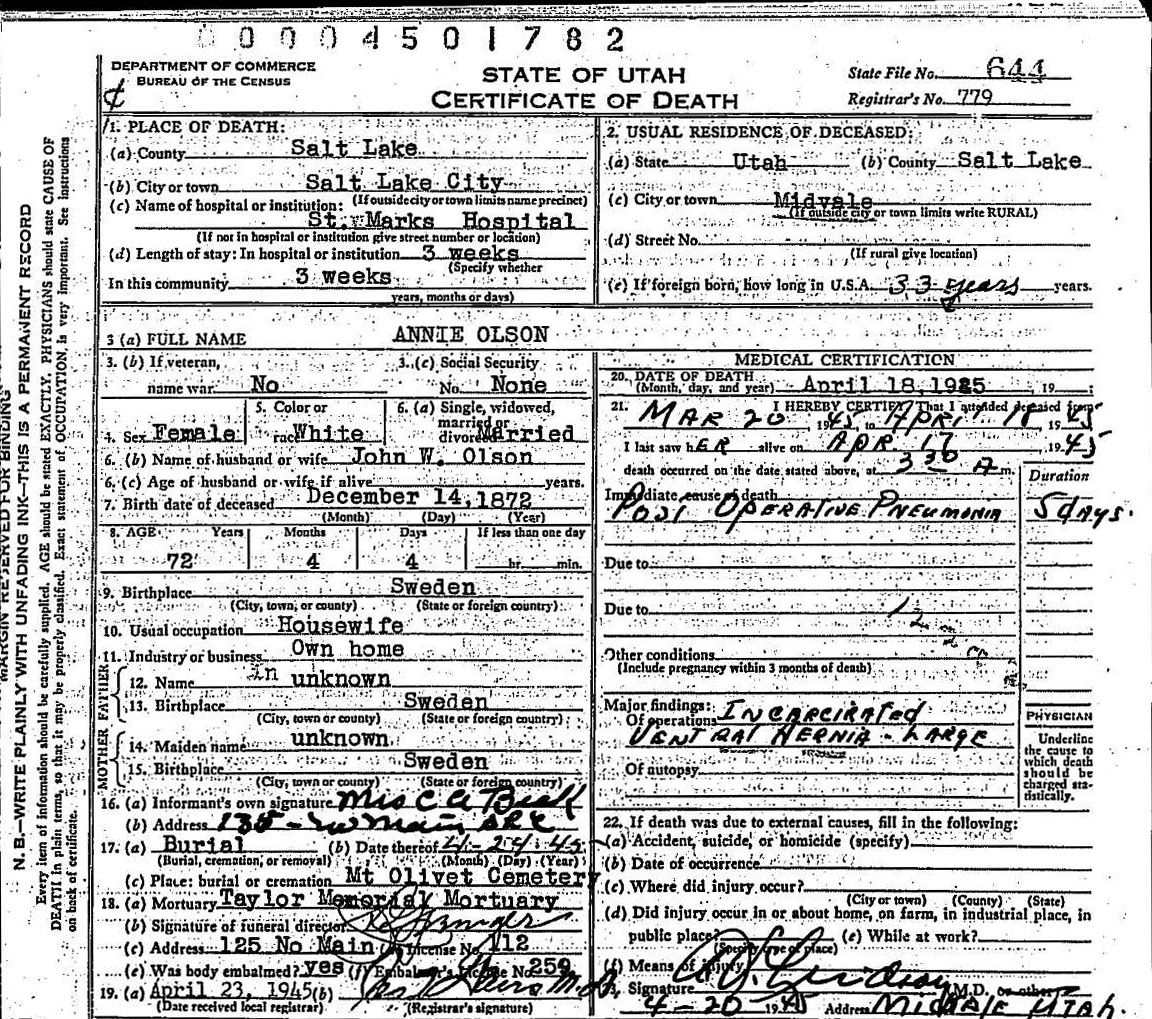 00004501782
DEPARTMENT OF COMMERCE
BUREAU OF THE CENSUS
STATE OF UTAH
CERTIFICATE OF DEATH
State File No. 644
Registrar's No. 779
MARGIN RESERVED FOR BINDING
N. B.—WRITE PLAINLY WITH UNFADING INK—THIS IS A PERMANENT RECORD
Every item of information should be carefully supplied. AGE should be stated EXACTLY. PHYSICIANS should state CAUSE OF
DEATH in plain terms, so that it may be properly classified. Exact statement of OCCUPATION is very important. See instructions
on back of certificate.
1. PLACE OF DEATH:
(a) County Salt Lake
(b) City or town Salt Lake City
(If outside city or town limits name precinct)
(c) Name of hospital or institution:
St. Marks Hospital
(If not in hospital or institution give street number or location)
(d) Length of stay: In hospital or institution 3 weeks
(Specify whether
In this community 3 weeks
years, months or days)
2. USUAL RESIDENCE OF DECEASED:
(a) State Utah (b) County Salt Lake
(c) City or town Midvale
(If outside city or town limits write RURAL)
(d) Street No.
(If rural give location)
(e) If foreign born, how long in U.S.A. 33 years years.
3 (a) FULL NAME ANNIE OLSON
3. (b) If veteran,
name war No
3. (c) Social Security
No. None
4. Sex Female
5. Color or
race White
6. (a) Single, widowed,
married or
divorced Married
6. (b) Name of husband or wife John W. Olson
6. (c) Age of husband or wife if alive years.
7. Birth date of deceased December 14, 1872
(Month) (Day) (Year)
8. AGE Years Months Days If less than one day
72 4 4 hr. min.
9. Birthplace Sweden
(City, town, or county) (State or foreign country)
10. Usual occupation Housewife
11. Industry or business Own home
FATHER
12. Name unknown
13. Birthplace Sweden
(City, town or county) (State or foreign country)
MOTHER
14. Maiden name unknown
15. Birthplace Sweden
(City, town or county) (State or foreign country)
16. (a) Informant's own signature Mrs C A
(b) Address Main
17. (a) Burial (b) Date thereof 4-24-45
(Burial, cremation, or removal) (Month) (Day) (Year)
(c) Place: burial or cremation Mt Olivet Cemetery
18. (a) Mortuary Taylor Memorial Mortuary
(b) Signature of funeral director
(c) Address 125 No Main License No. 112
(e) Was body embalmed? yes (f) Embalmer's License No. 259
19. (a) April 23, 1945 (b) M.D.
(Date received local registrar) (Registrar's signature)
MEDICAL CERTIFICATION
20. DATE OF DEATH
(Month, day, and year) April 18, 1945, 19
21. I HEREBY CERTIFY That I attended deceased from
MAR 20 1945, to April 18 1945
I last saw hER alive on APR. 17, 1945
death occurred on the date stated above, at 3 30 A m.
Duration
Immediate cause of death
POST OPERATIVE PNEUMONIA 5 days.
Due to
Due to
Other conditions
(Include pregnancy within 3 months of death)
Major findings:
Of operations INCARCIRATED
VENTRAL HERNIA - LARGE
Of autopsy
PHYSICIAN
Underline
the cause to
which death
should be
charged sta-
tistically.
22. If death was due to external causes, fill in the following:
(a) Accident, suicide, or homicide (specify)
(b) Date of occurrence
(c) Where did injury occur?
(City or town) (County) (State)
(d) Did injury occur in or about home, on farm, in industrial place, in
public place? (e) While at work?
(Specify type of place)
(f) Means of injury
23. Signature M.D. or other
4-20 1945 Address MIDVALE UTAH.